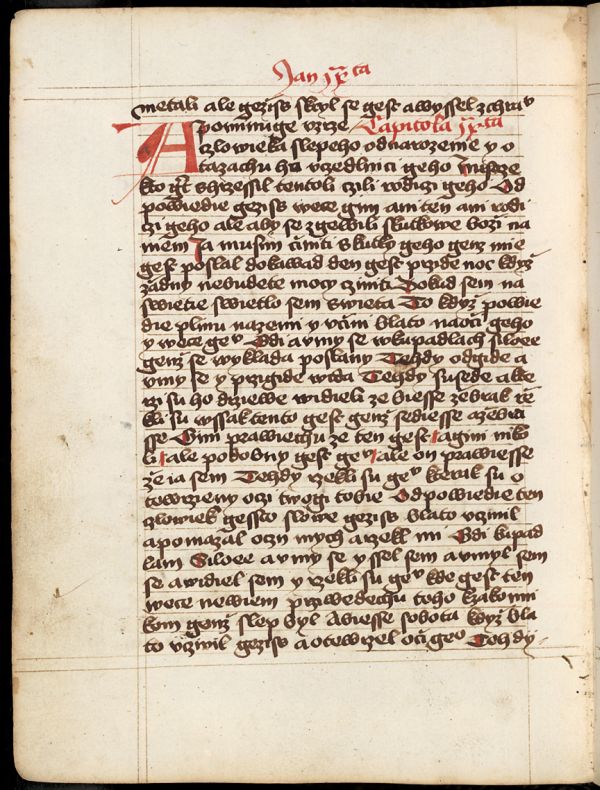 Jan jx ta
metali ale geziss skryl se gest a wyssel z chramu
A pominuge vzrze Capitola jx ta
czlowieka slepeho od narozenie y o
tazachu ho vczedlnici geho Mistrze
kto gt shrzessil tentoli czili rodiczi geho Od
powiedie geziss wece gim ani ten ani rodi
czi geho ale aby se zgewili skutkowe bozi na
niem Ja musim činiti skutky geho genz mie
gest poslal dokawad den gest przide noc kdyz
zadny nebudete mocy cziniti Dokud sem na
swietie swietlo sem swieta To kdyz powie
die plinu na zemi y včini blato na oči geho
y wece gev Gdi a vmy se w kupadlach siloee
genz se wyklada poslany Tehdy odgide a
vmy se y przigide wida Tehdy susede a kte
rzi su ho drziewe widieli ze biesse zebrak rze
kli su wssak tento gest genz sediesse a zebra
sse Gini prawiechu ze ten gest a gini niko
li ale podobny gest gev ale on prawiesse
ze ia sem Tehdy rzekli su gev kterak su o
tewrzieny oczi twogi tobie Odpowiedie ten
czlowiek gessto slowe geziss blato vczinil
a pomazal oczy mych a rzekl mi Gdi k upad
lam Siloee a vmy se y ssel sem a vmyl sem
se a widiel sem y rzekli su gev kde gest ten
wece newiem przwedechu toho k zakonni
kom genz slep byl A biesse sobota kdyz bla
to vczinil geziss a otewrzel oči geo Tehdy